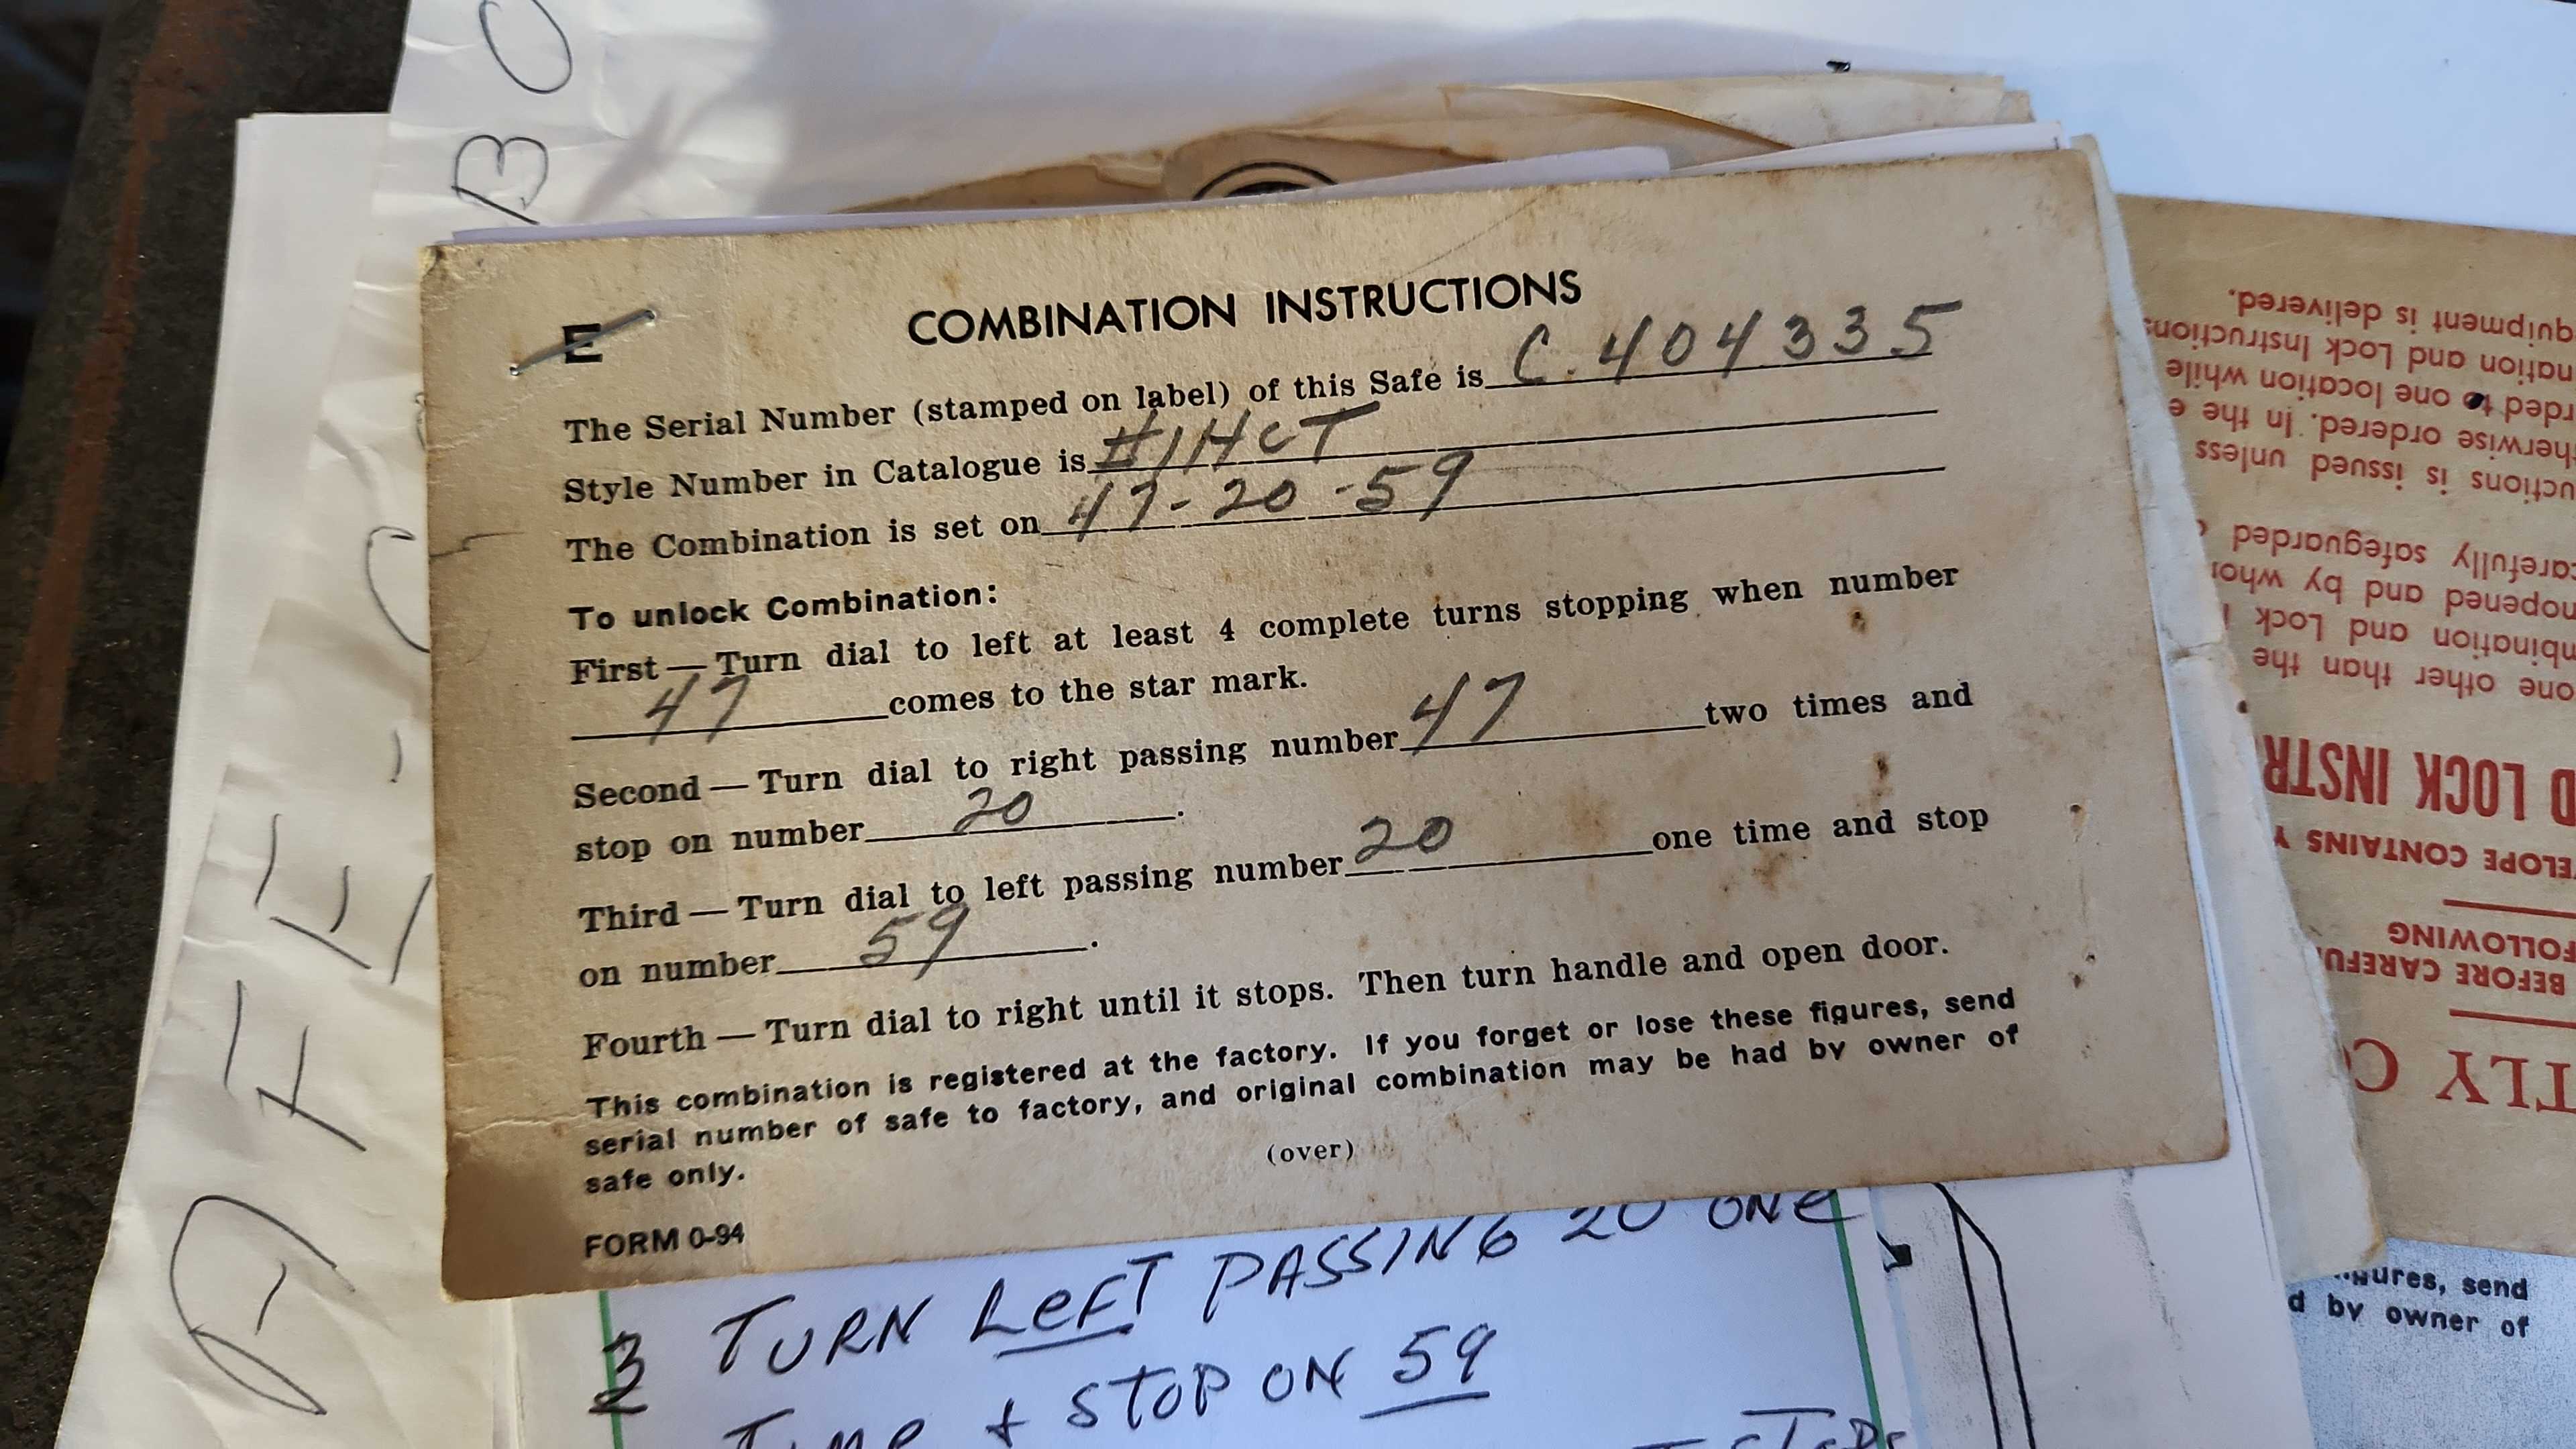 E
COMBINATION INSTRUCTIONS
The Serial Number (stamped on label) of this Safe is C. 404335
Style Number in Catalogue is #1HCT
The Combination is set on 47-20-59
To unlock Combination:
First — Turn dial to left at least 4 complete turns stopping when number
47 comes to the star mark.
Second — Turn dial to right passing number 47 two times and
stop on number 20.
Third — Turn dial to left passing number 20 one time and stop
on number 59.
Fourth — Turn dial to right until it stops. Then turn handle and open door.
This combination is registered at the factory. If you forget or lose these figures, send
serial number of safe to factory, and original combination may be had by owner of
safe only.
(over)
FORM 0-94
3 TURN LEFT PASSING 20 ONE
TIME + STOP ON 59
STOPS
AFE - C
BO
TLY C
BEFORE CAREFU
FOLLOWING
ELOPE CONTAINS Y
D LOCK INSTR
one other than the
mbination and Lock
nopened and by whom
carefully safeguarded
uctions is issued unless
therwise ordered. In the e
rded to one location while
nation and Lock Instructions
quipment is delivered.
gures, send
d by owner of